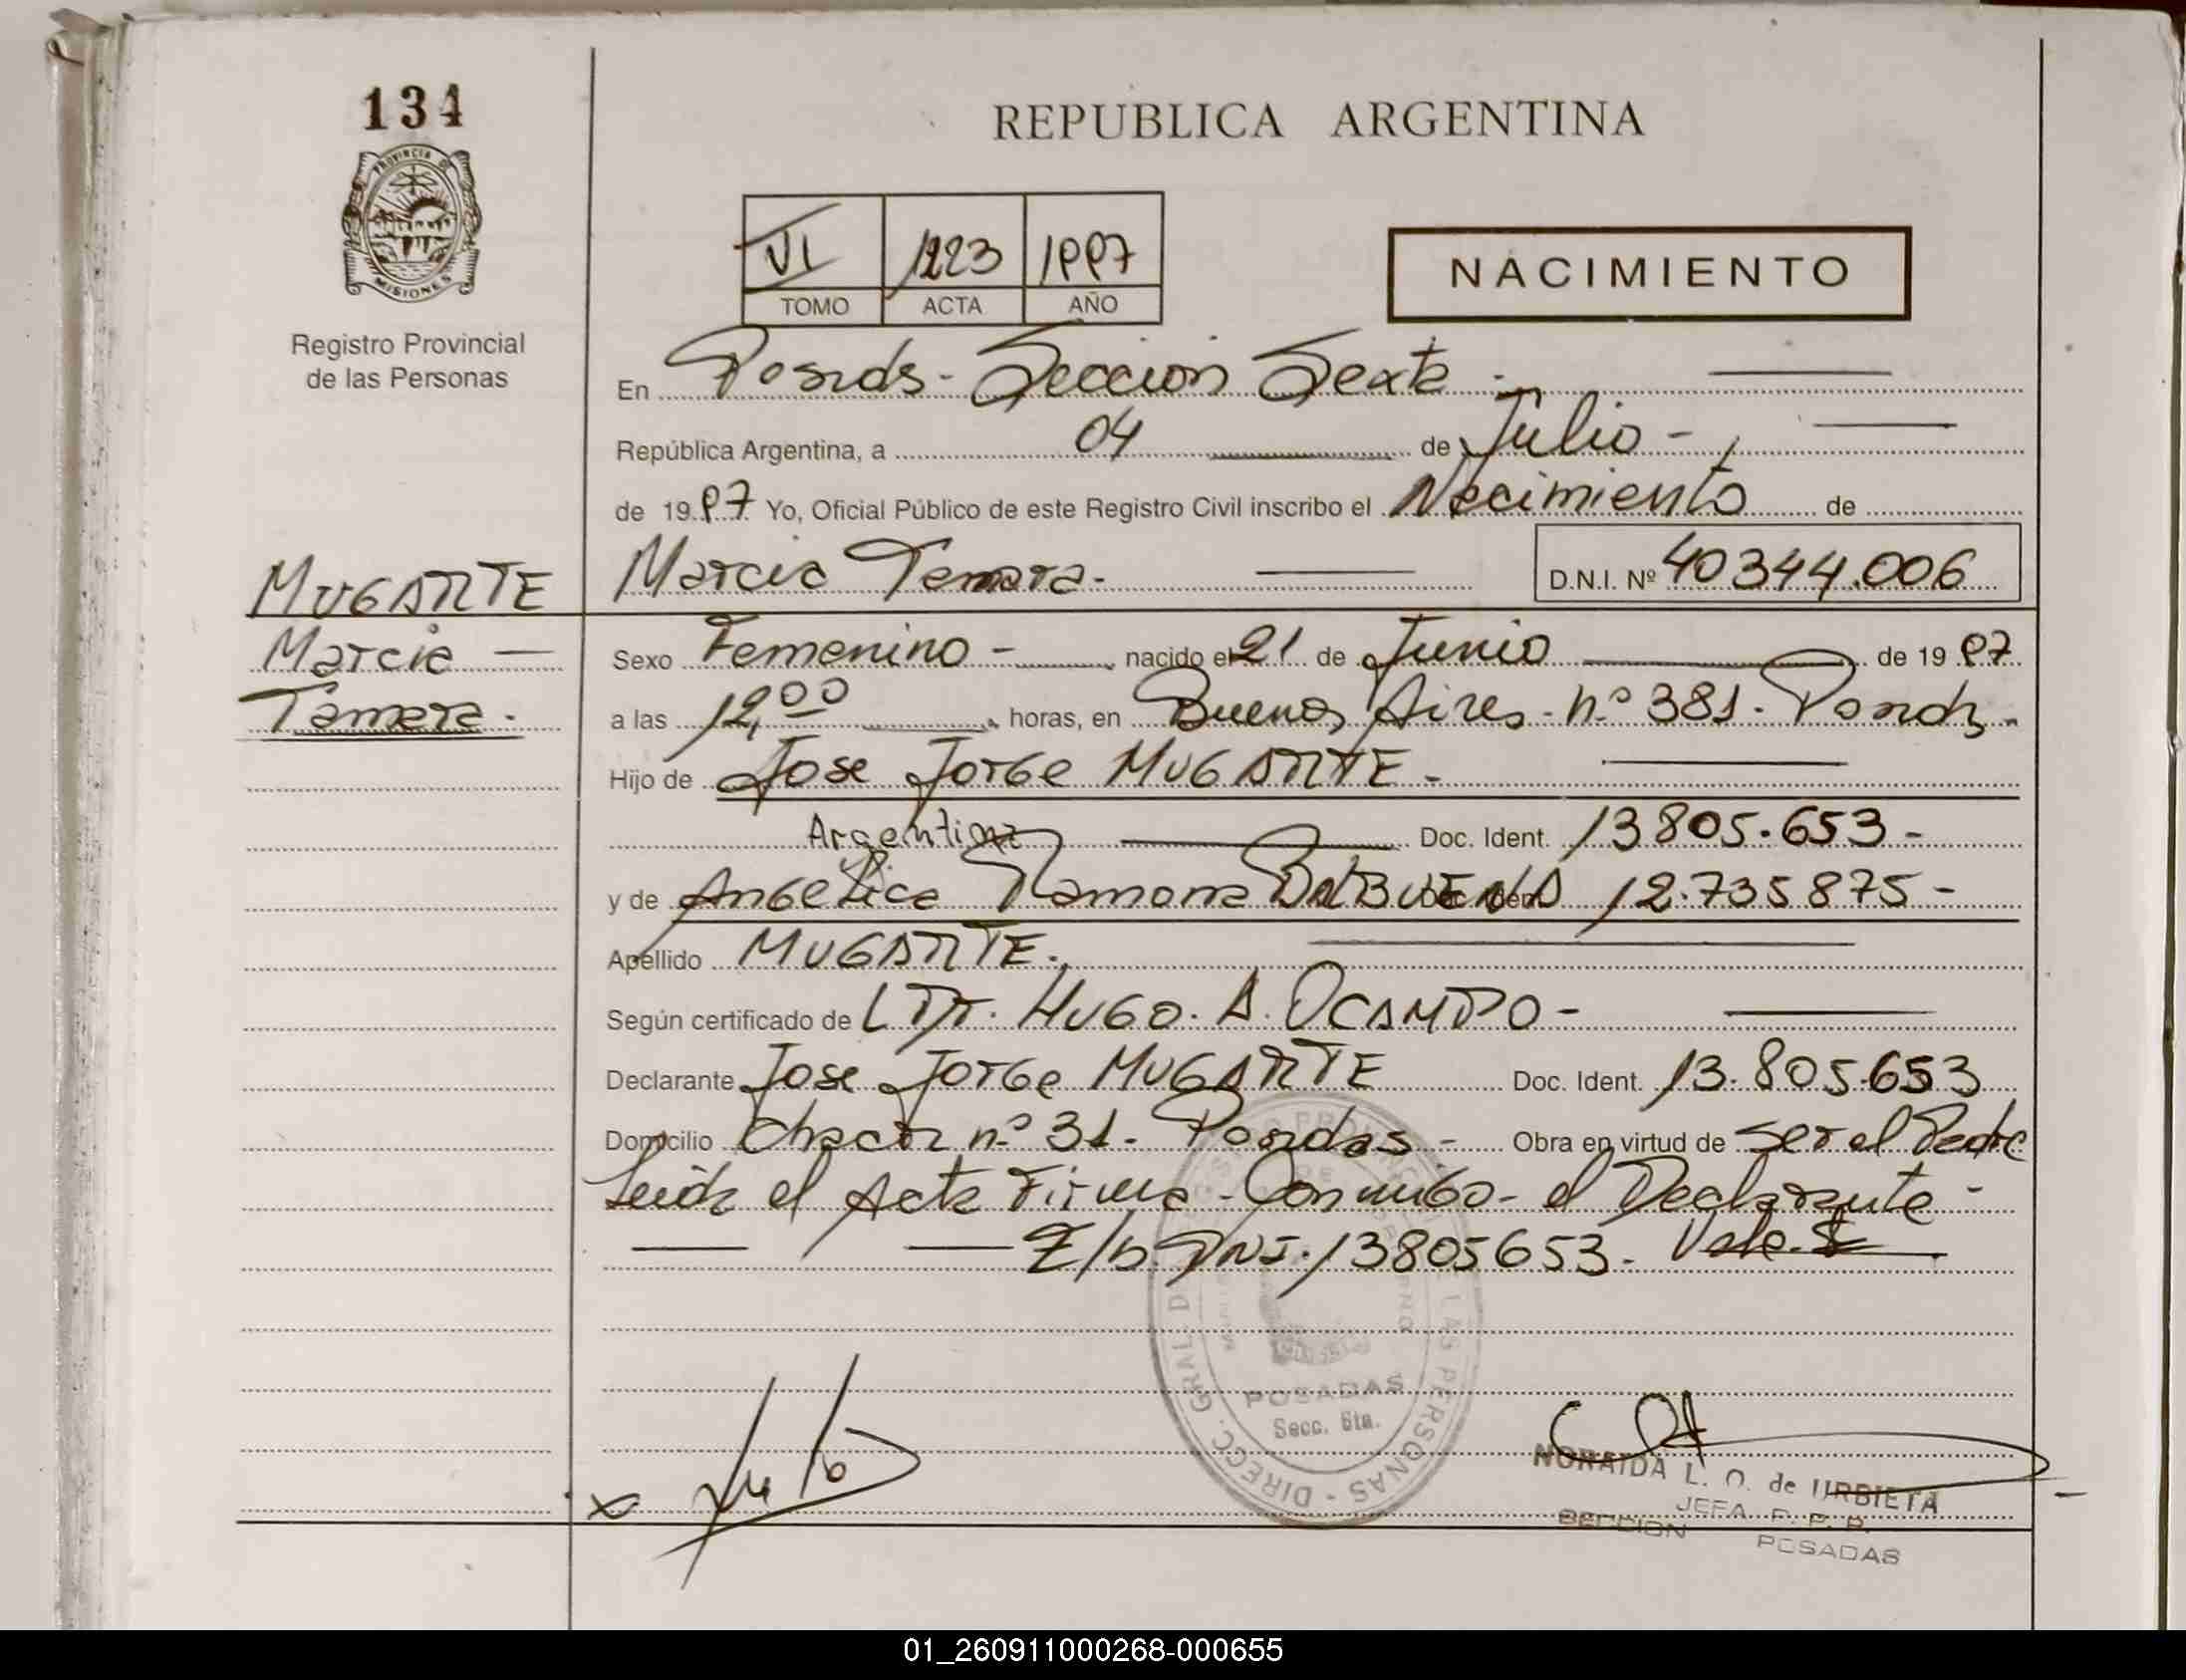 134
REPUBLICA ARGENTINA
PROVINCIA DE
MISIONES
Registro Provincial
de las Personas
VI 1223 1997
TOMO ACTA AÑO
NACIMIENTO
En Posadas - Seccion Sexta -
República Argentina, a 04 de Julio -
de 1997 Yo, Oficial Público de este Registro Civil inscribo el Nacimiento de
MUGARTE
Marcia
Tamara.
Marcia Tamara. D.N.I. Nº 40344.006
Sexo Femenino - nacido el 21 de Junio de 1997
a las 12,00 horas, en Buenos Aires - n.º 381 - Posadas -
Hijo de Jose Jorge MUGARTE -
Argentina Doc. Ident. 13805.653 -
y de Angelica Ramona 12.735875 -
Apellido MUGARTE.
Según certificado de HUGO. A. OCAMPO -
Declarante Jose Jorge MUGARTE Doc. Ident. 13.805.653
Domicilio n.º 31 - Posadas - Obra en virtud de ser el Padre
Leida el Acta Firma - Conmigo - el Declarante -
E/b DNI. 13805653. Vale.
POSADAS
Secc. 6ta.
DIRECC. GRAL. DE LAS PERSONAS
NORAIDA L. O. de URBIETA
JEFA
SECCION POSADAS
01_260911000268-000655